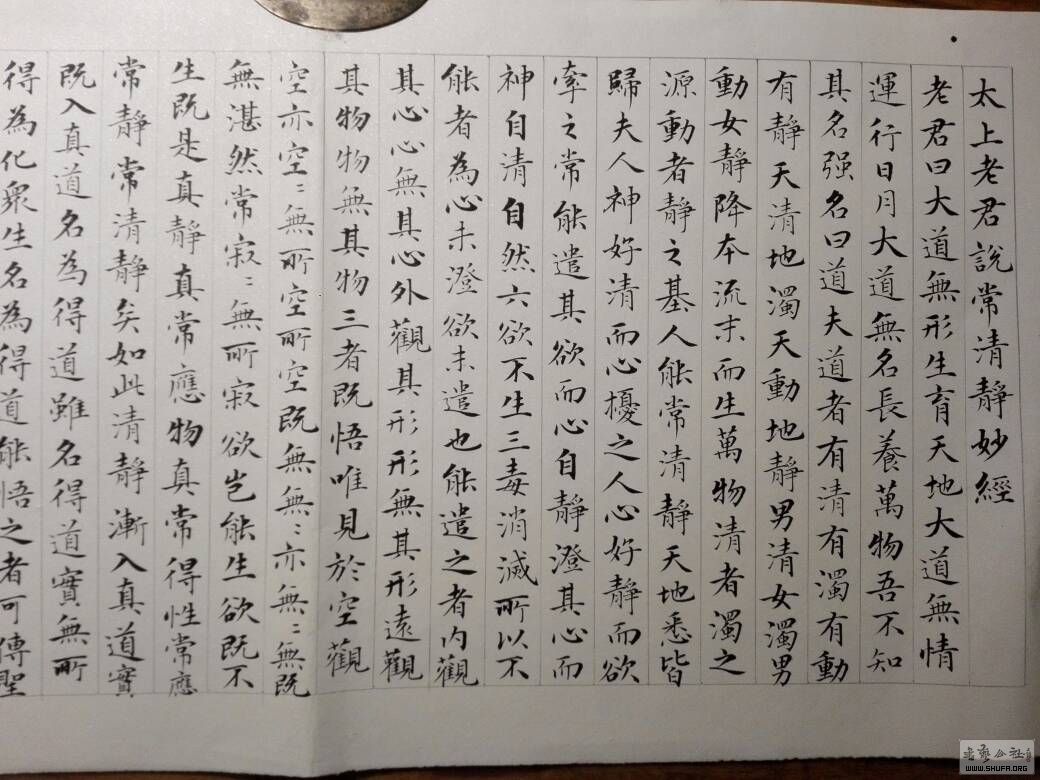 太上老君說常清靜妙經
老君曰大道無形生育天地大道無情
運行日月大道無名長養萬物吾不知
其名强名曰道夫道者有清有濁有動
有靜天清地濁天動地靜男清女濁男
動女靜降本流末而生萬物清者濁之
源動者靜之基人能常清靜天地悉皆
歸夫人神好清而心擾之人心好靜而欲
牽之常能遣其欲而心自靜澄其心而
神自清自然六欲不生三毒消滅所以不
能者為心未澄欲未遣也能遣之者內觀
其心心無其心外觀其形形無其形遠觀
其物物無其物三者既悟唯見於空觀
空亦空:無所空所空既無無:亦無:無既
無湛然常寂:無所寂欲岂能生欲既不
生既是真靜真常應物真常得性常應
常靜常清靜矣如此清靜漸入真道實
既入真道名為得道雖名得道實無所
得為化眾生名為得道能悟之者可傳聖
書藝公社
WWW.SHUFA.ORG